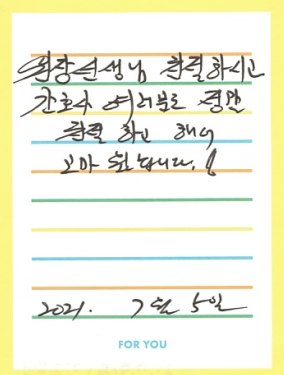 원장선생님 친절하시고
간호사 여러분도 정말
친절 하고 해서
고마 웠습니다.
2021. 7월 5일
FOR YOU